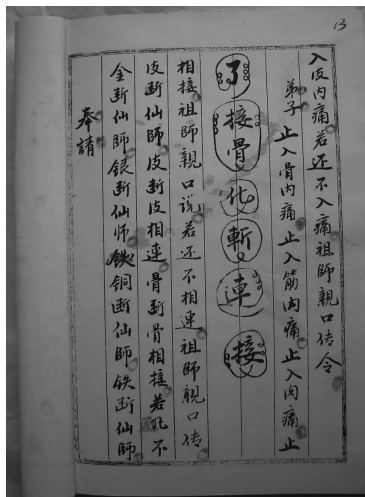 13
入皮内痛若还不入痛祖師親口传令
弟子止入骨内痛止入筋内痛止入肉痛止
了接骨化斬連接
相接祖師親口说若还不相連祖師親口传
皮断仙師皮断皮相連骨断骨相接若此不
金断仙師银断仙师铁铜断仙師铁断仙師
奉請